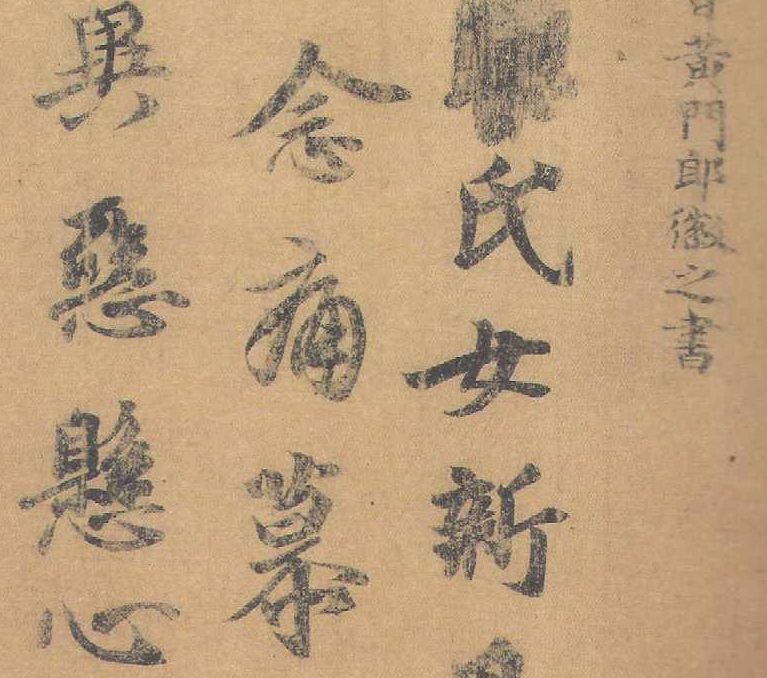 黃門郎徽之書
氏女新
念痛慕
異惡懸心